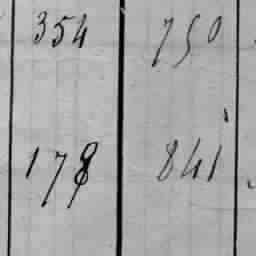 354 750
178 841